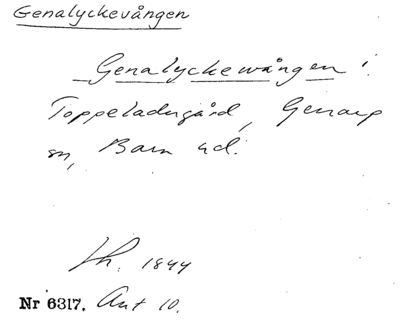 Genalyckevången
Genalyckewången i
Toppeladugård, Genarp
sn, Bara hd.
Lh. 1844
Nr 6317. Ant 10.